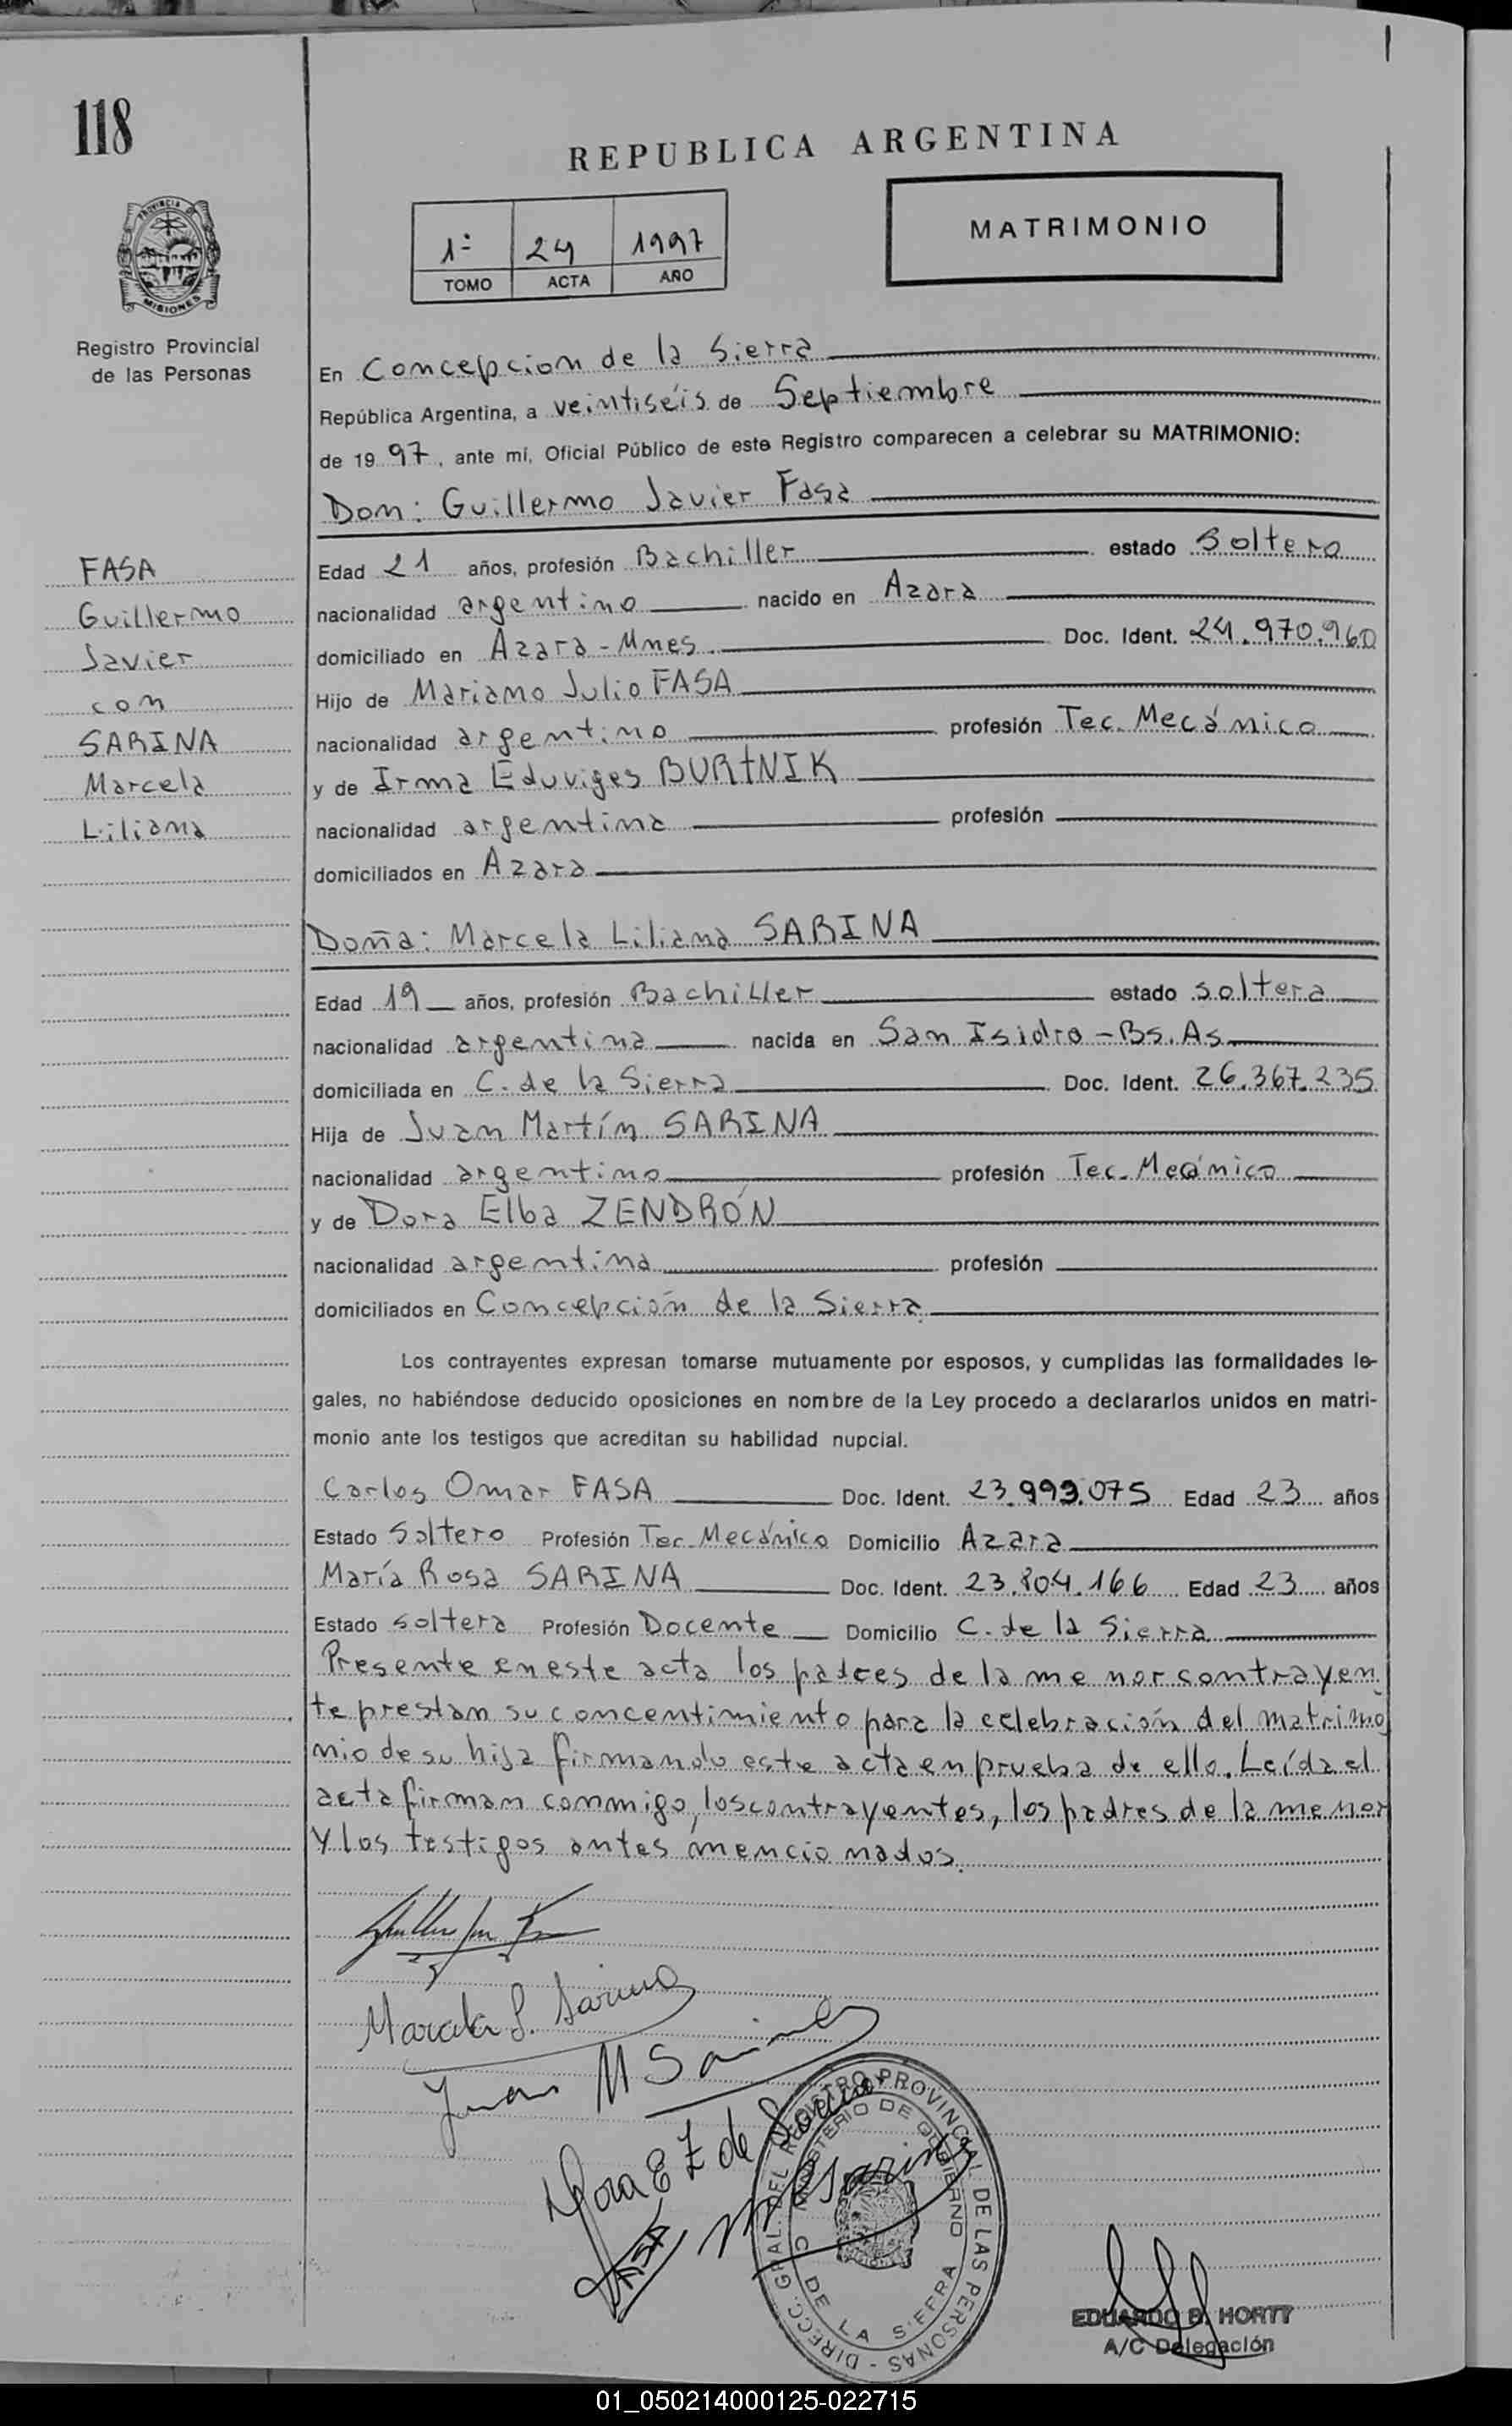 118
REPUBLICA ARGENTINA
PROVINCIA DE
MISIONES
1º 24 1997
TOMO ACTA AÑO
MATRIMONIO
Registro Provincial
de las Personas
En Concepcion de la Sierra
República Argentina, a veintiséis de Septiembre
de 19 97, ante mí, Oficial Público de este Registro comparecen a celebrar su MATRIMONIO:
Don: Guillermo Javier Fasa
FASA
Guillermo
Javier
con
SARINA
Marcela
Liliana
Edad 21 años, profesión Bachiller estado Soltero
nacionalidad argentino nacido en Azara
domiciliado en Azara - Mnes. Doc. Ident. 24.970.960
Hijo de Mariano Julio FASA
nacionalidad argentino profesión Tec. Mecánico
y de Irma Eduviges BURTNIK
nacionalidad argentina profesión
domiciliados en Azara
Doña: Marcela Liliana SARINA
Edad 19 años, profesión Bachiller estado soltera
nacionalidad argentina nacida en San Isidro - Bs. As.
domiciliada en C. de la Sierra Doc. Ident. 26.367.235
Hija de Juan Martín SARINA
nacionalidad argentino profesión Tec. Mecánico
y de Dora Elba ZENDRÓN
nacionalidad argentina profesión
domiciliados en Concepción de la Sierra
Los contrayentes expresan tomarse mutuamente por esposos, y cumplidas las formalidades le-
gales, no habiéndose deducido oposiciones en nombre de la Ley procedo a declararlos unidos en matri-
monio ante los testigos que acreditan su habilidad nupcial.
Carlos Omar FASA Doc. Ident. 23.999.075 Edad 23 años
Estado Soltero Profesión Tec. Mecánico Domicilio Azara
María Rosa SARINA Doc. Ident. 23.804.166 Edad 23 años
Estado soltera Profesión Docente Domicilio C. de la Sierra
Presente en este acta los padres de la menor contrayen
te prestan su concentimiento para la celebración del matrimo
nio de su hija firmando este acta en prueba de ello. Leída el
acta firman conmigo, los contrayentes, los padres de la menor
y los testigos antes mencionados.
Marcela L. Sarina
Juan M Sarina
Dora E Z de Sarina
MRSarina
FASA
DIRECC. GRAL. DEL REGISTRO PROVINCIAL DE LAS PERSONAS -
MINISTERIO DE GOBIERNO
C DE LA SIERRA
EDUARDO B. HORTT
A/C Delegación
01_050214000125-022715